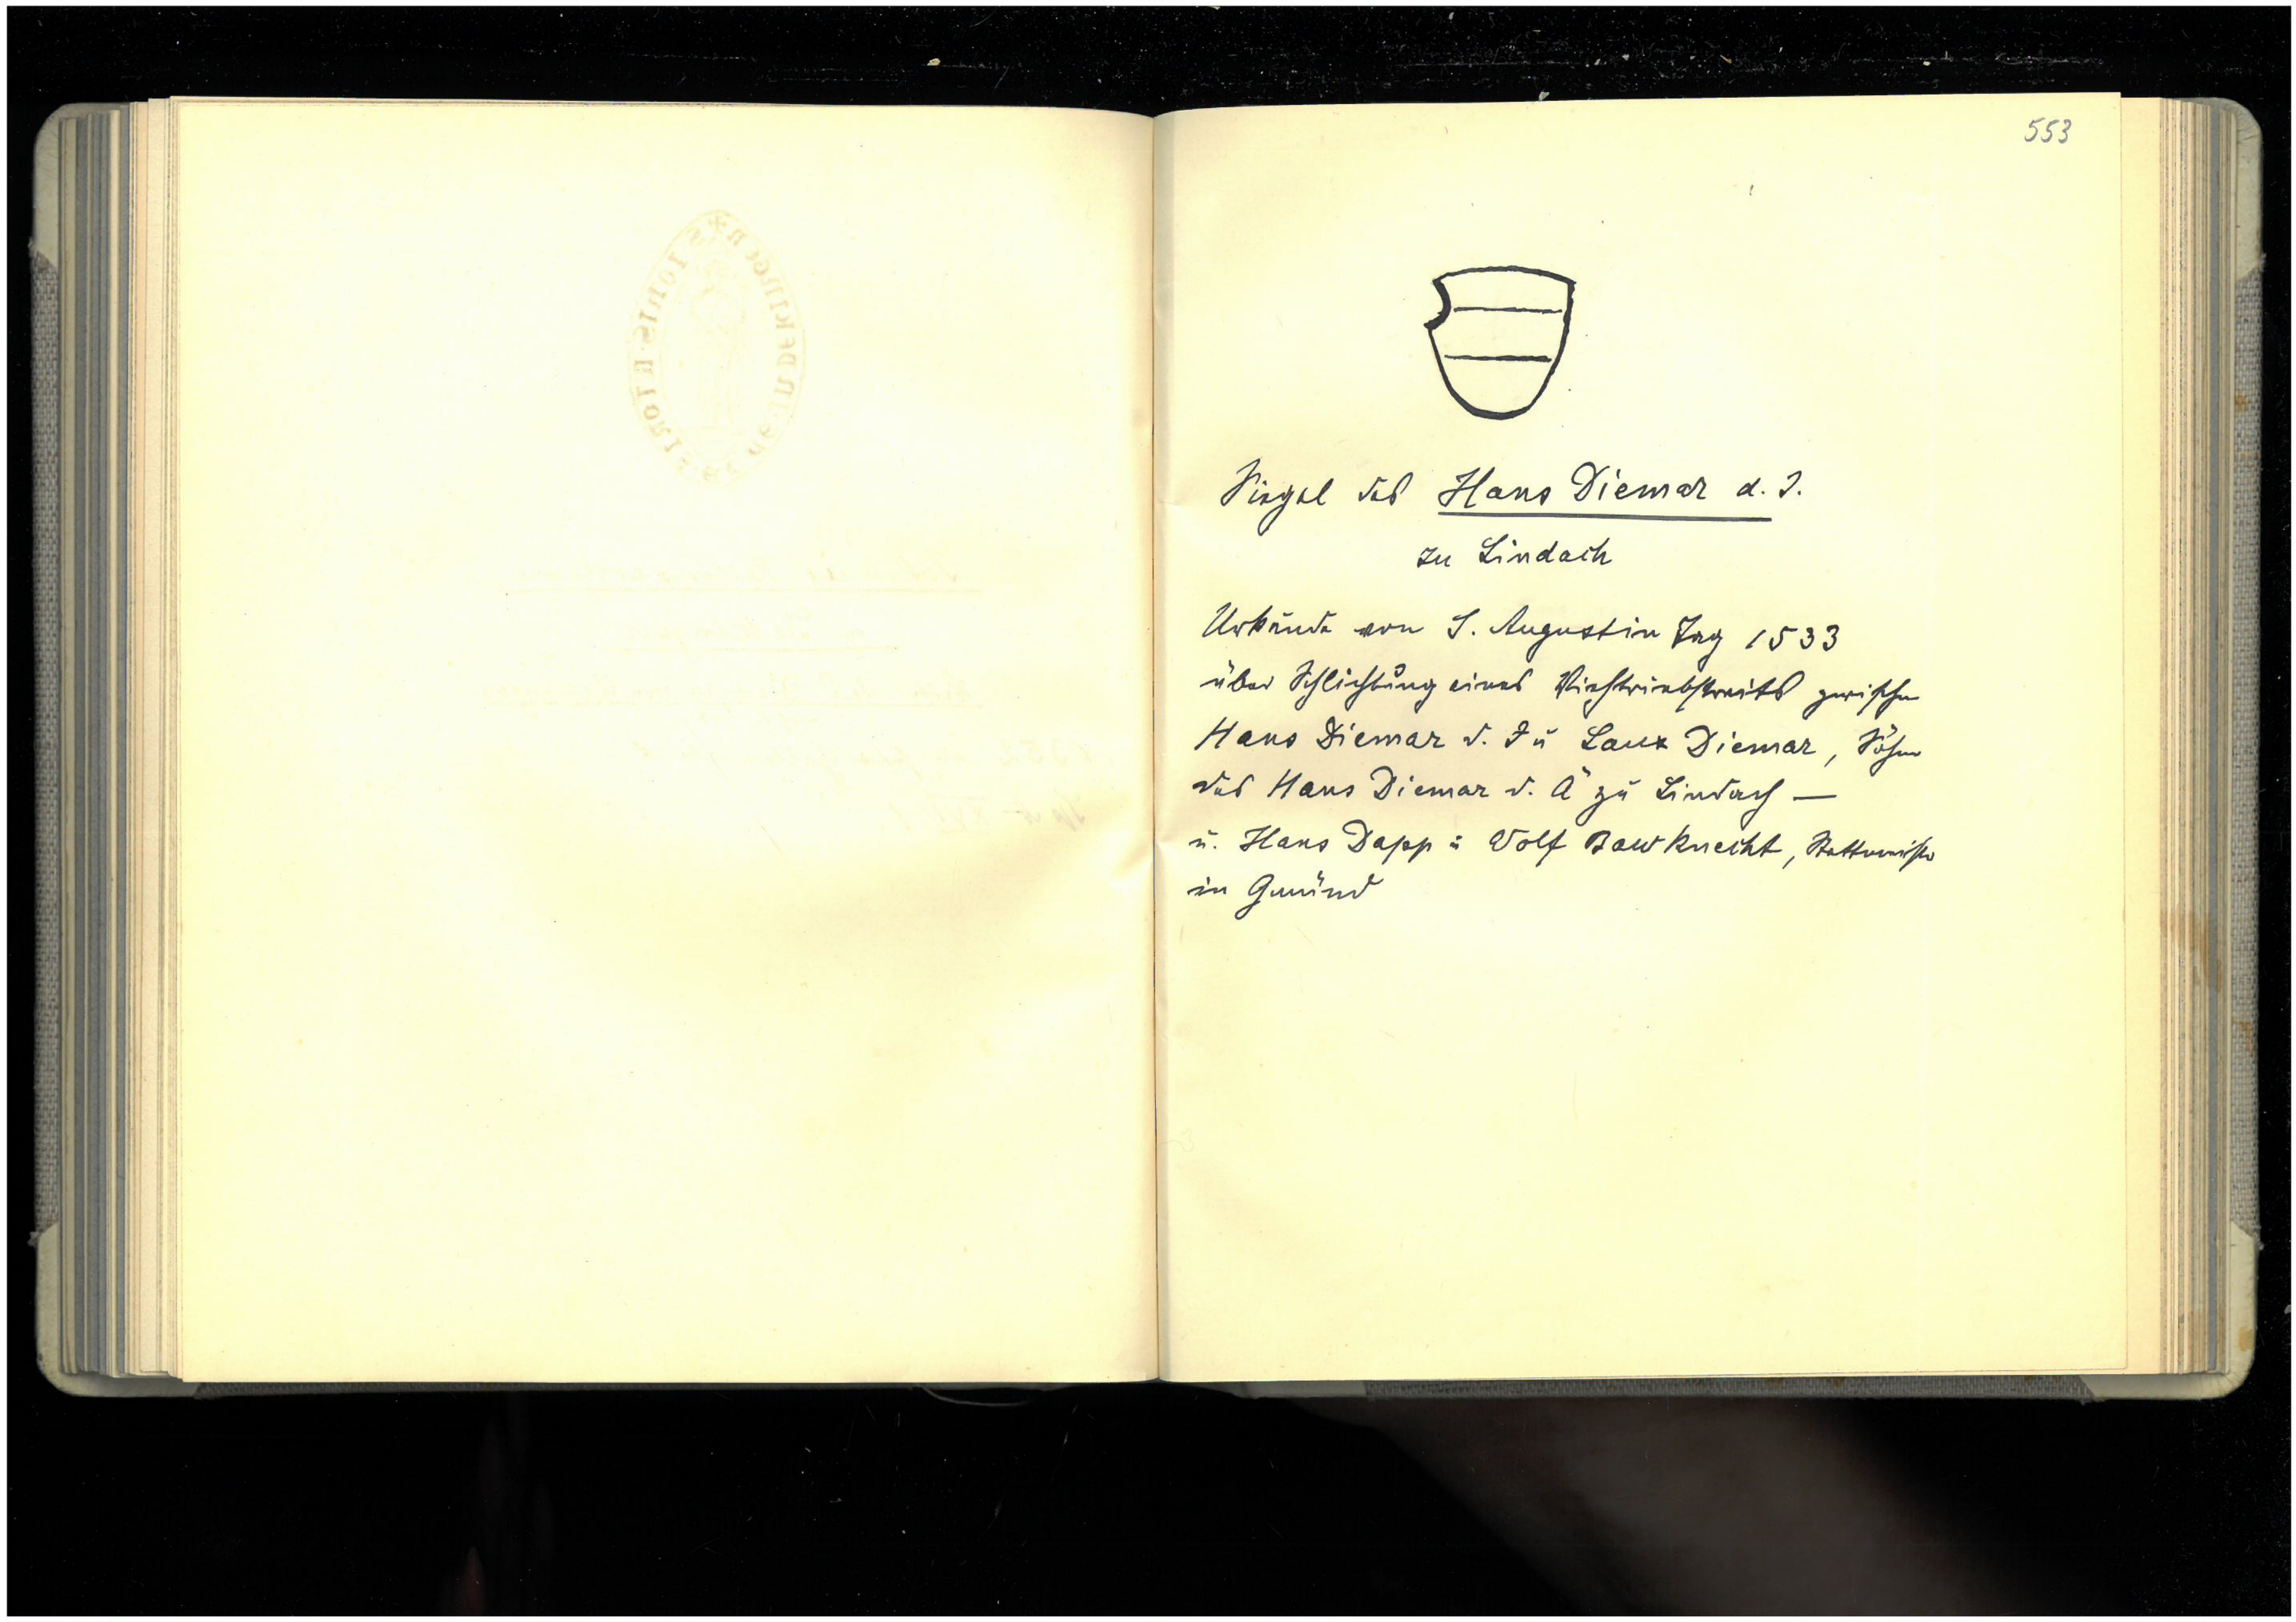 553
Siegel des Hans Diemar d. J.
zu Lindach
Urkunde von S. Augustin Tag 1533
über Schlichtung eines Viehtriebstreits zwischen
Hans Diemar d. J u Laux Diemar, Söhne
des Hans Diemar d. Ä zu Lindach —
u. Hans Dapp u Wolf Bawknecht, Stattmeister
in Gmünd